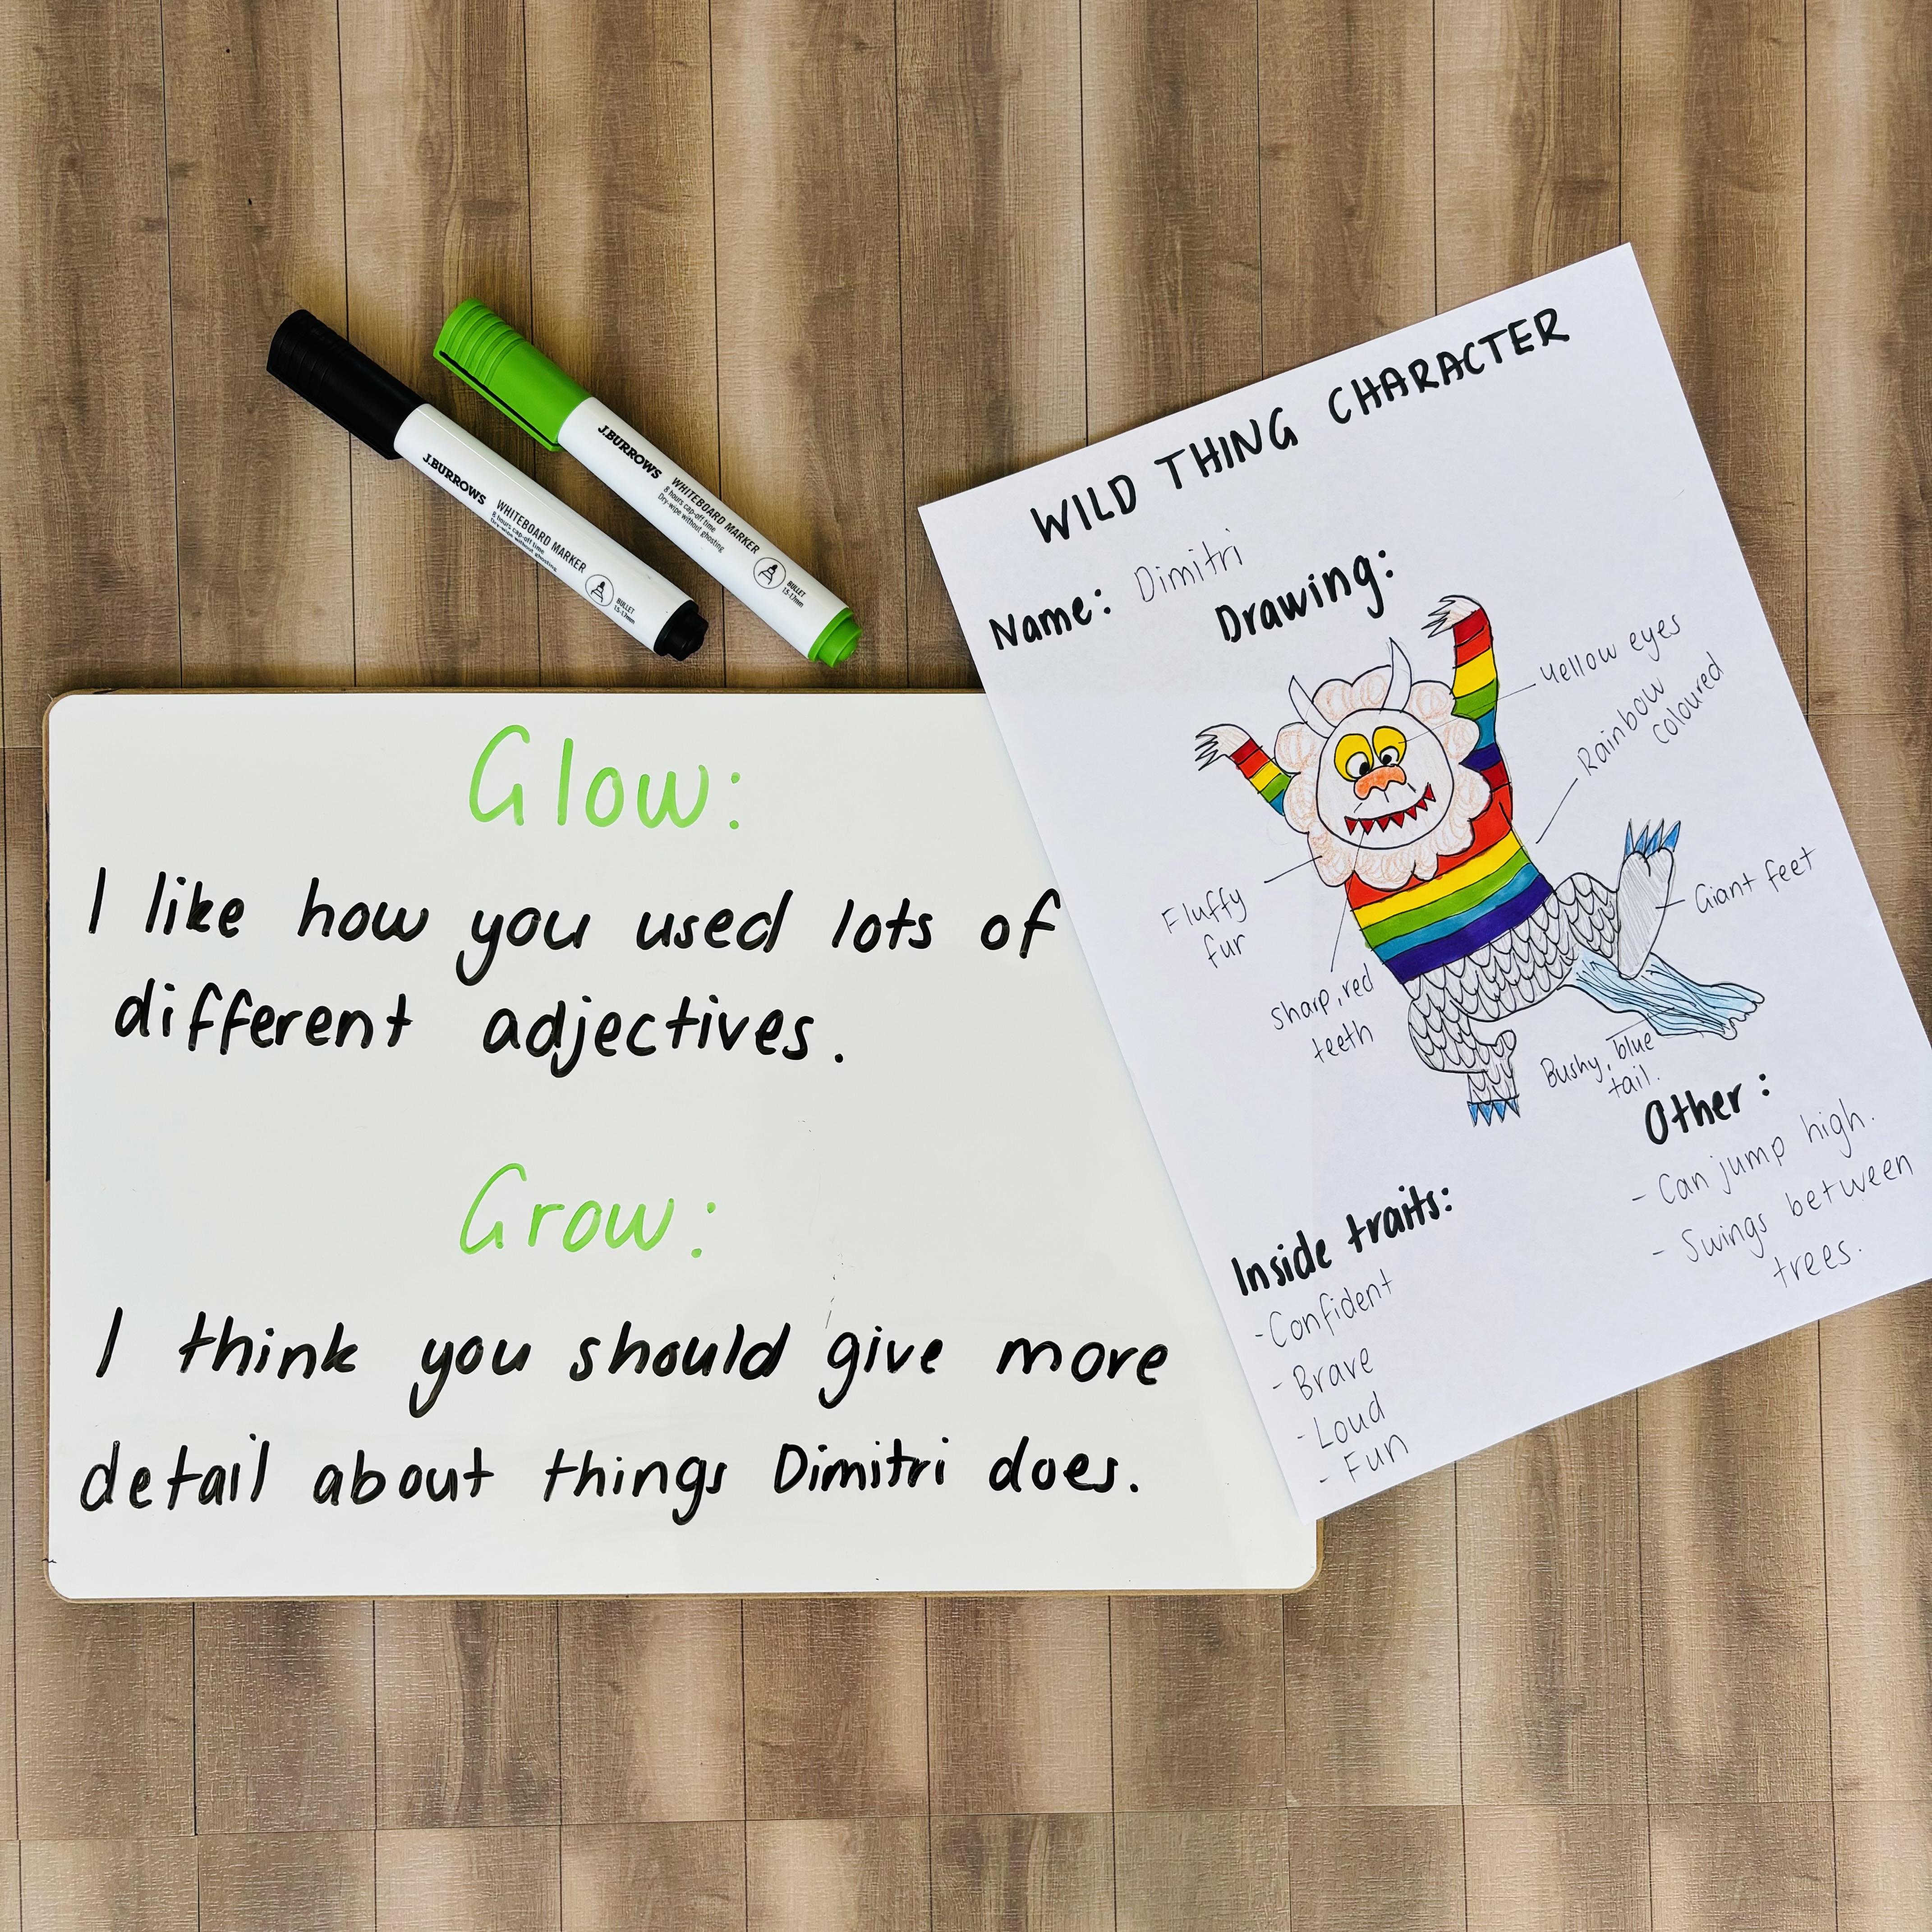 J.BURROWS
WHITEBOARD MARKER
8 hours cap-off time
Dry-wipe without ghosting
BULLET
1.5-1.7mm
J.BURROWS
WHITEBOARD MARKER
8 hours cap-off time
Dry-wipe without ghosting
BULLET
1.5-1.7mm
Glow:
I like how you used lots of
different adjectives.
Grow:
I think you should give more
detail about things Dimitri does.
WILD THING CHARACTER
Name: Dimitri
Drawing:
Yellow eyes
Rainbow
coloured
Giant feet
Fluffy
fur
Sharp, red
teeth
Bushy, blue
tail.
Other:
- Can jump high.
- Swings between
trees.
Inside traits:
- Confident
- Brave
- Loud
- Fun